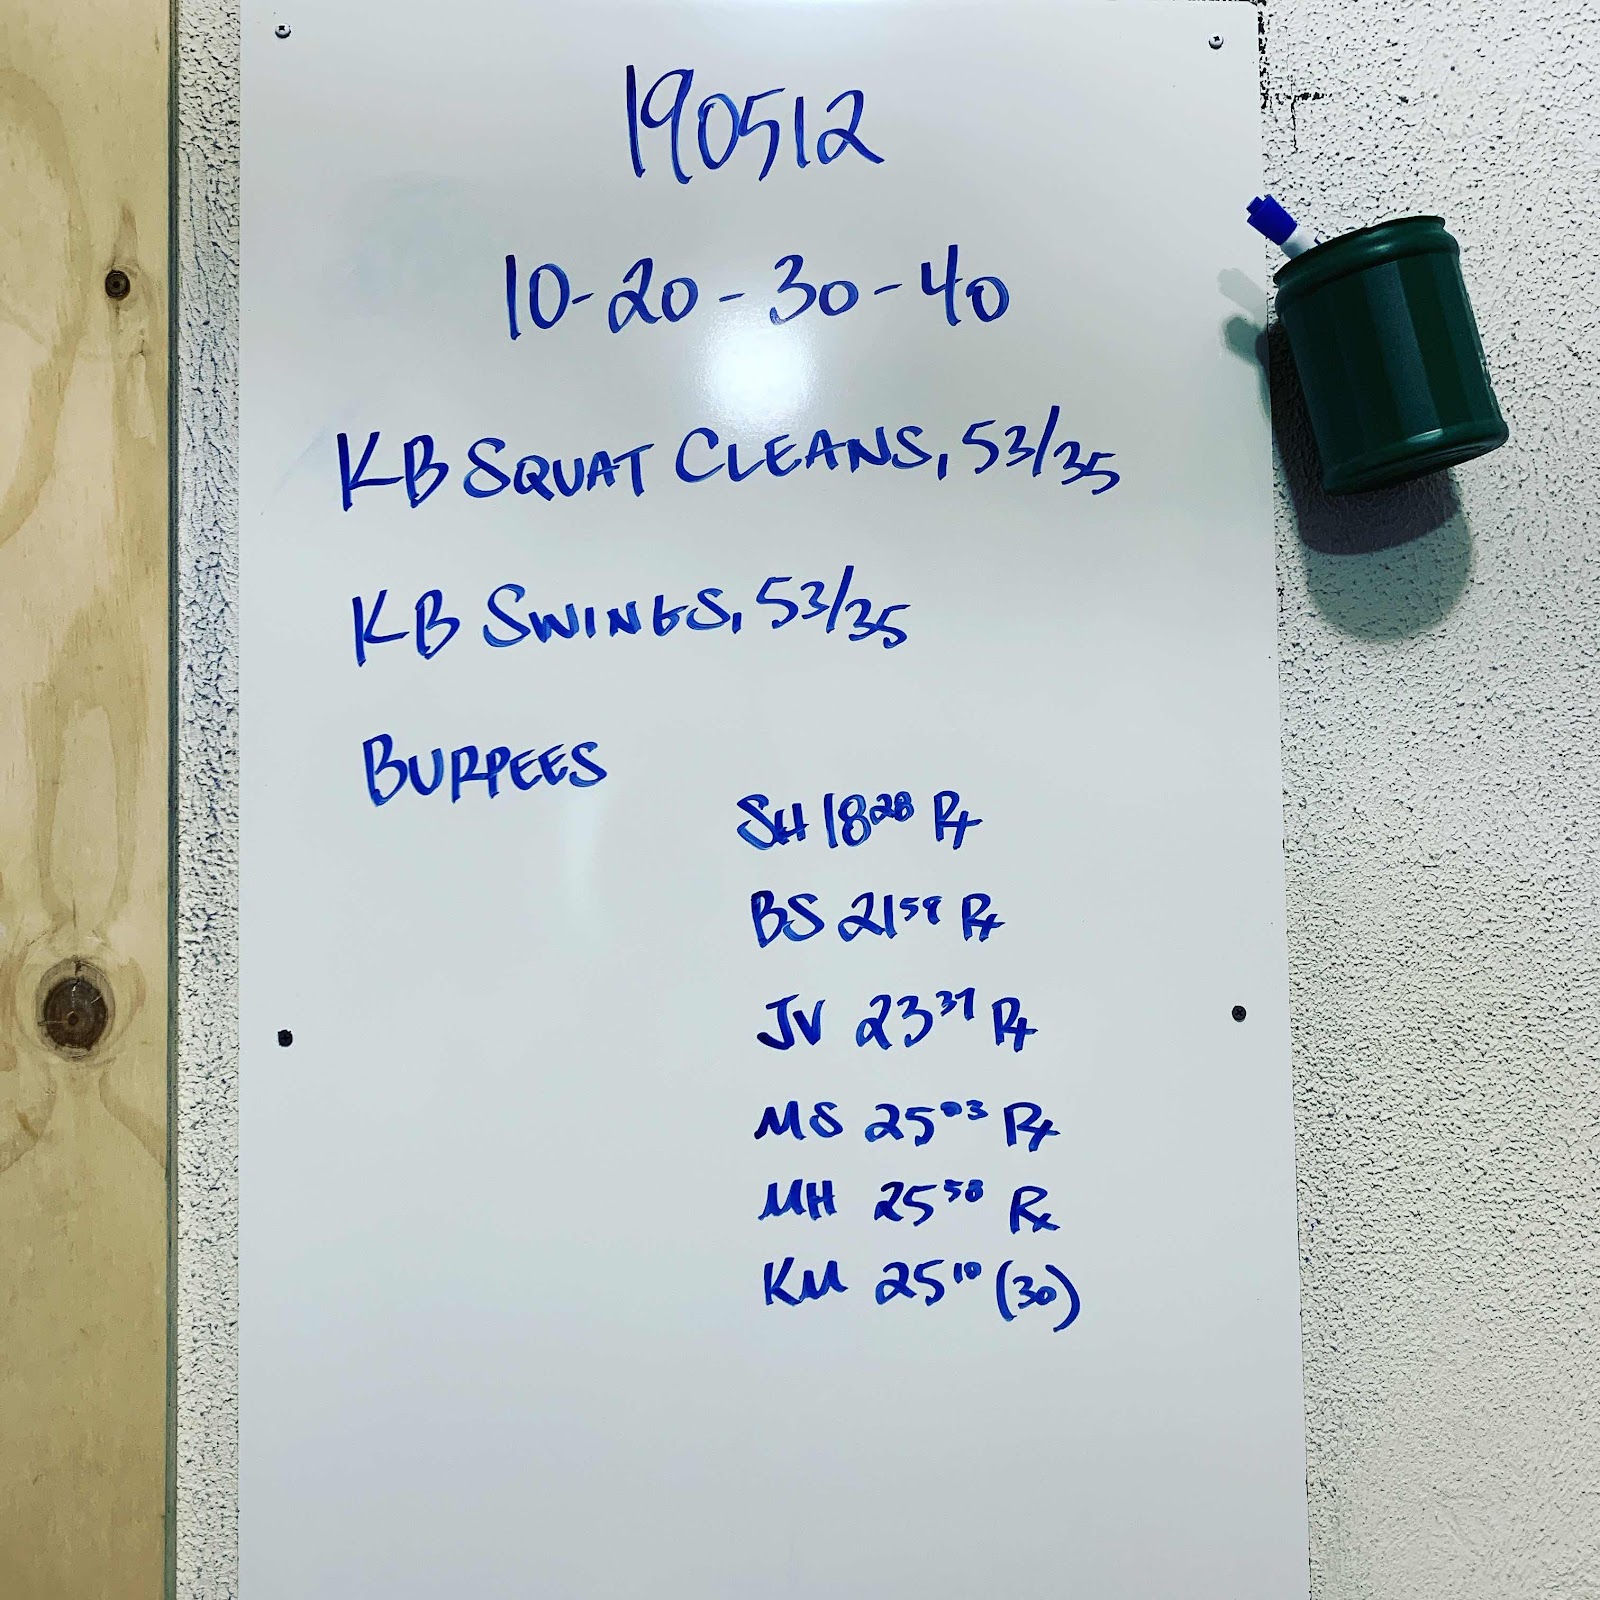 190512
10-20-30-40
KB SQUAT CLEANS, 53/35
KB SWINGS, 53/35
BURPEES
SH 18 28 Rx
BS 21 59 Rx
JV 23 37 Rx
MS 25 03 Rx
MH 25 58 Rx
KM 25 10 (30)